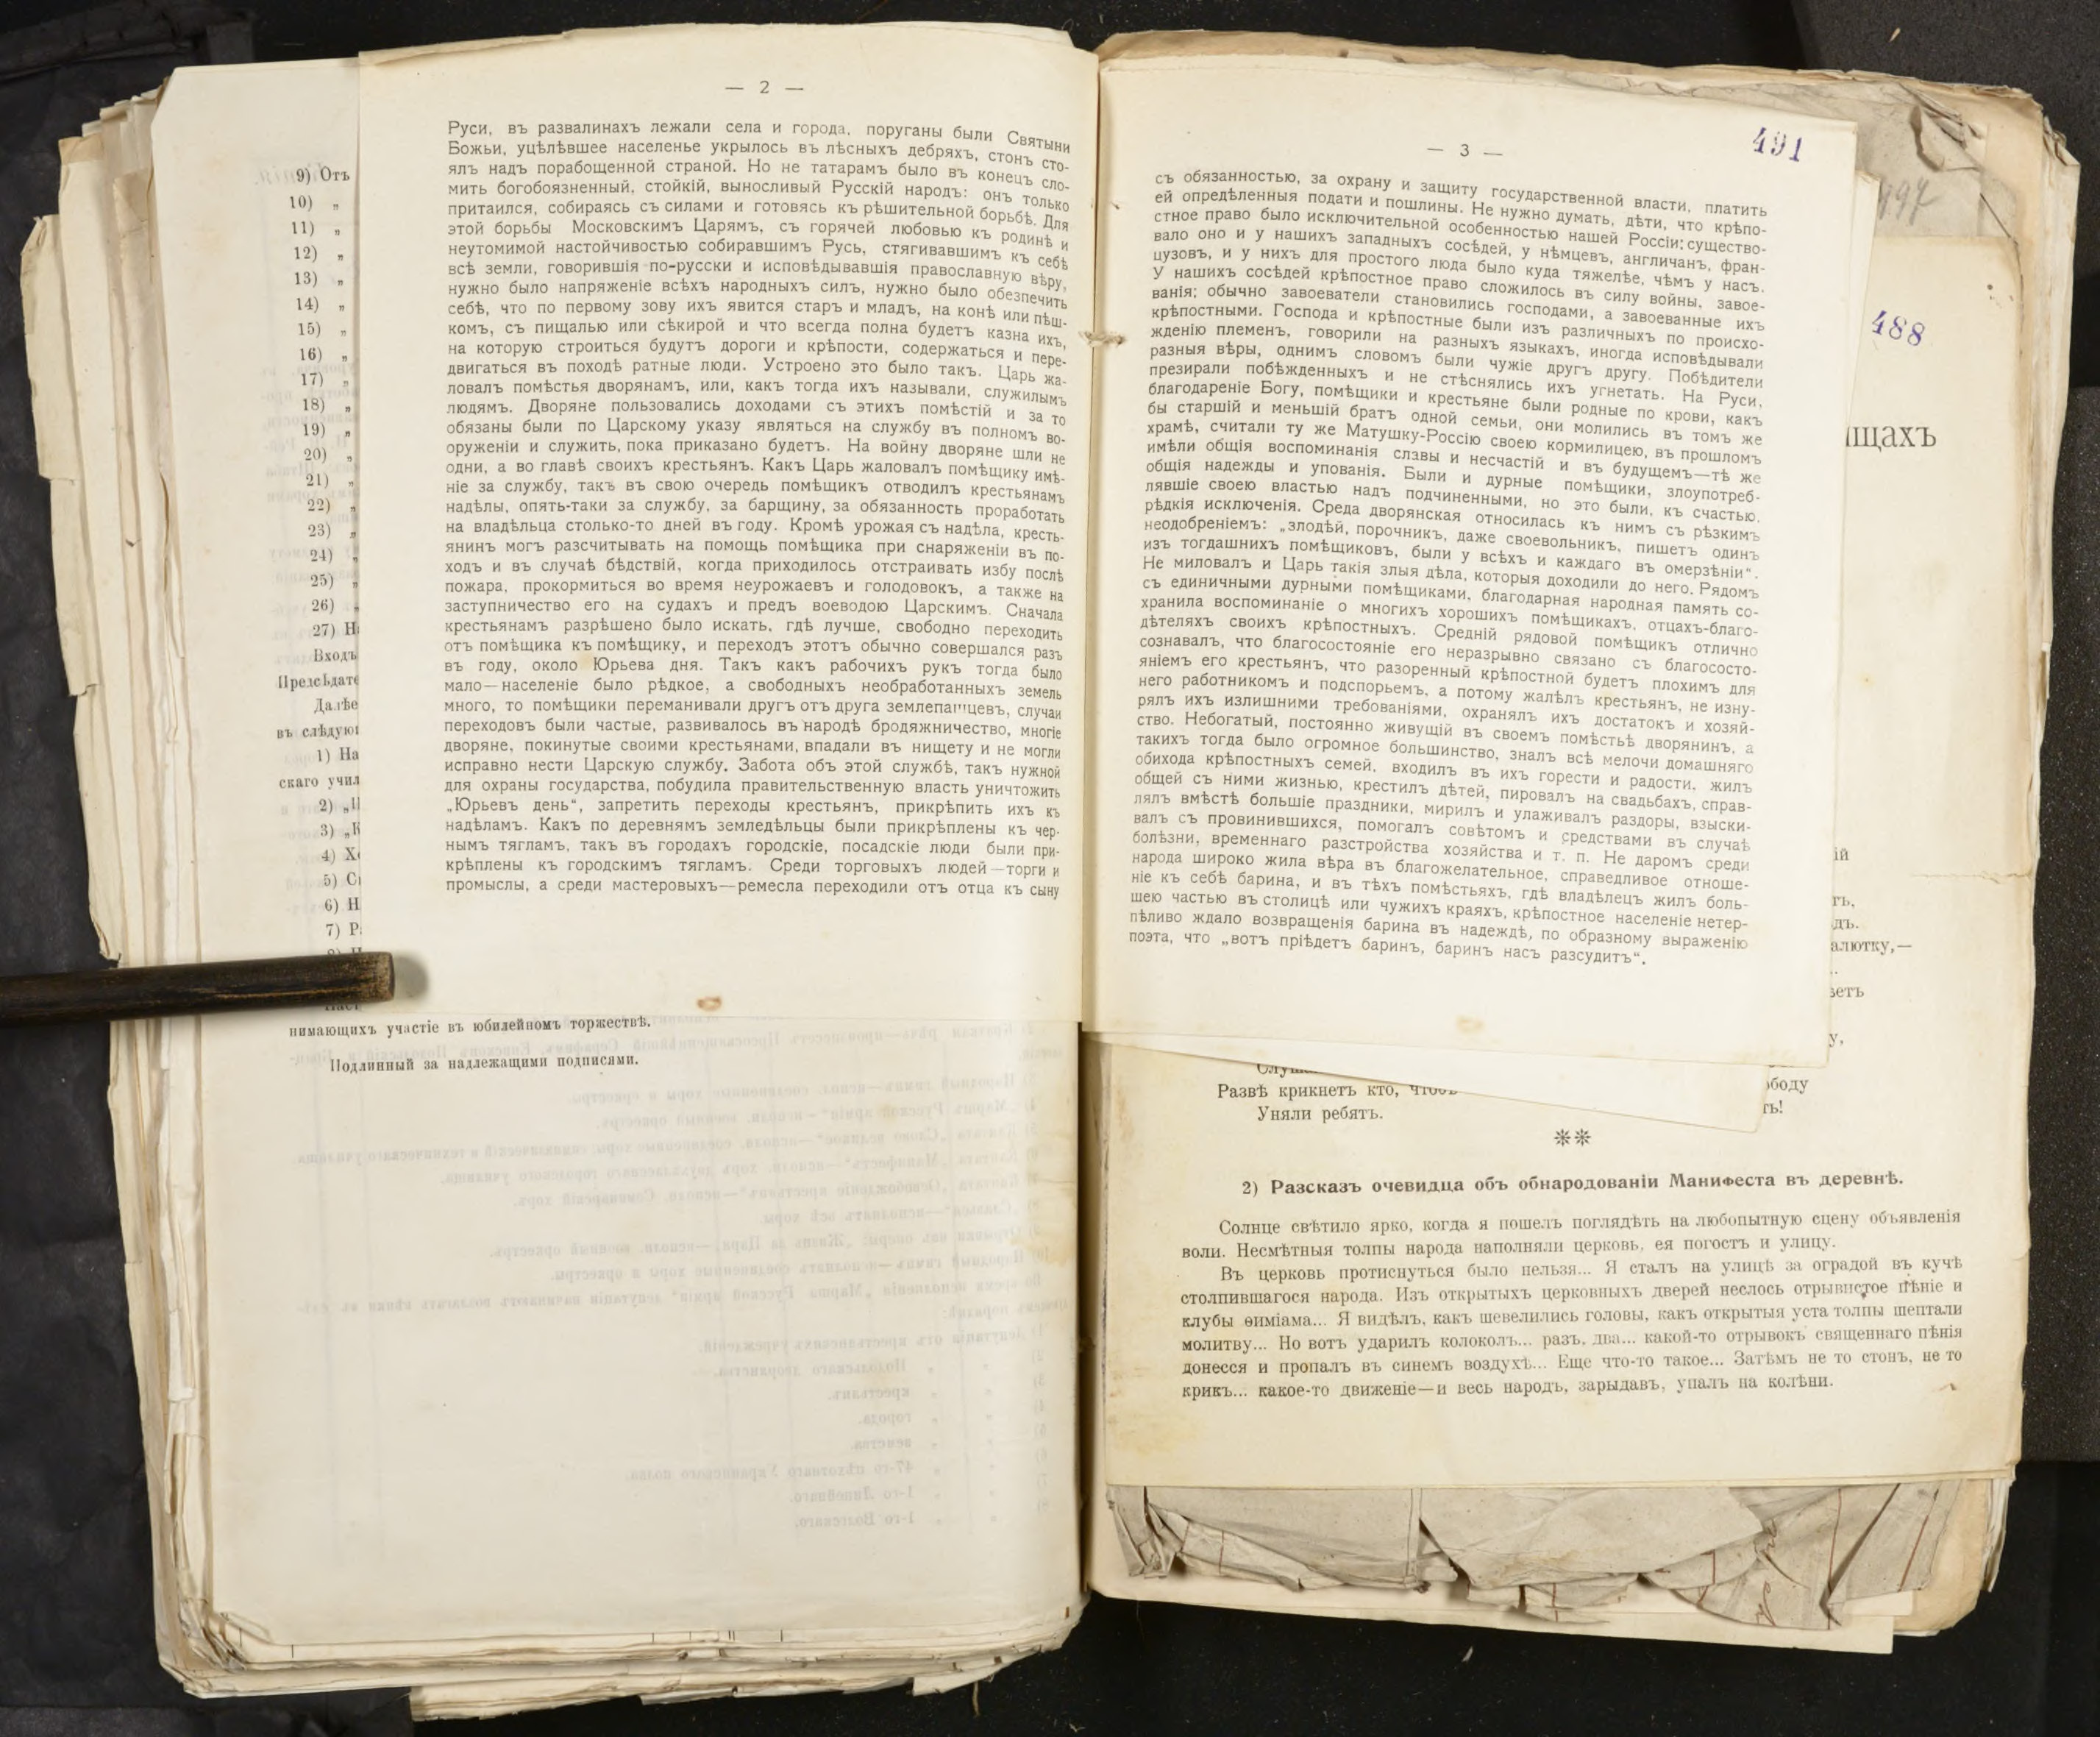 — 2 —
Руси, въ развалинахъ лежали села и города, поруганы были Святыни
Божьи, уцѣлѣвшее населенье укрылось въ лѣсныхъ дебряхъ, стонъ сто-
ялъ надъ порабощенной страной. Но не татарамъ было въ конецъ сло-
мить богобоязненный, стойкій, выносливый Русскій народъ: онъ только
притаился, собираясь съ силами и готовясь къ рѣшительной борьбѣ. Для
этой борьбы Московскимъ Царямъ, съ горячей любовью къ родинѣ и
неутомимой настойчивостью собиравшимъ Русь, стягивавшимъ къ себѣ
всѣ земли, говорившія по-русски и исповѣдывавшія православную вѣру,
нужно было напряженіе всѣхъ народныхъ силъ, нужно было обезпечить
себѣ, что по первому зову ихъ явится старъ и младъ, на конѣ или пѣш-
комъ, съ пищалью или сѣкирой и что всегда полна будетъ казна ихъ,
на которую строиться будутъ дороги и крѣпости, содержаться и пере-
двигаться въ походѣ ратные люди. Устроено это было такъ. Царь жа-
ловалъ помѣстья дворянамъ, или, какъ тогда ихъ называли, служилымъ
людямъ. Дворяне пользовались доходами съ этихъ помѣстій и за то
обязаны были по Царскому указу являться на службу въ полномъ во-
оруженіи и служить, пока приказано будетъ. На войну дворяне шли не
одни, а во главѣ своихъ крестьянъ. Какъ Царь жаловалъ помѣщику имѣ-
ніе за службу, такъ въ свою очередь помѣщикъ отводилъ крестьянамъ
надѣлы, опять-таки за службу, за барщину, за обязанность проработать
на владѣльца столько-то дней въ году. Кромѣ урожая съ надѣла, кресть-
янинъ могъ разсчитывать на помощь помѣщика при снаряженіи въ по-
ходъ и въ случаѣ бѣдствій, когда приходилось отстраивать избу послѣ
пожара, прокормиться во время неурожаевъ и голодовокъ, а также на
заступничество его на судахъ и предъ воеводою Царскимъ. Сначала
крестьянамъ разрѣшено было искать, гдѣ лучше, свободно переходить
отъ помѣщика къ помѣщику, и переходъ этотъ обычно совершался разъ
въ году, около Юрьева дня. Такъ какъ рабочихъ рукъ тогда было
мало—населеніе было рѣдкое, а свободныхъ необработанныхъ земель
много, то помѣщики переманивали другъ отъ друга землепашцевъ, случаи
переходовъ были частые, развивалось въ народѣ бродяжничество, многіе
дворяне, покинутые своими крестьянами, впадали въ нищету и не могли
исправно нести Царскую службу. Забота объ этой службѣ, такъ нужной
для охраны государства, побудила правительственную власть уничтожить
„Юрьевъ день“, запретить переходы крестьянъ, прикрѣпить ихъ къ
надѣламъ. Какъ по деревнямъ земледѣльцы были прикрѣплены къ чер-
нымъ тягламъ, такъ въ городахъ городскіе, посадскіе люди были при-
крѣплены къ городскимъ тягламъ. Среди торговыхъ людей—торги и
промыслы, а среди мастеровыхъ—ремесла переходили отъ отца къ сыну
9) Отъ
10) „
11) „
12) „
13) „
14) „
15) „
16) „
17) „
18) „
19) „
20) „
21) „
22) „
23) „
24) „
25) „
26) „
27) Н
Входъ
Предсѣдате
Далѣе
въ слѣдую
1) На
скаго учил
2) „
3) „К
4) Х
5) С
6) Н
7) Р
нимающихъ участіе въ юбилейномъ торжествѣ.
Подлинный за надлежащими подписями.
— 3 —
491
съ обязанностью, за охрану и защиту государственной власти, платить
ей опредѣленныя подати и пошлины. Не нужно думать, дѣти, что крѣпо-
стное право было исключительной особенностью нашей Россіи; существо-
вало оно и у нашихъ западныхъ сосѣдей, у нѣмцевъ, англичанъ, фран-
цузовъ, и у нихъ для простого люда было куда тяжелѣе, чѣмъ у насъ.
У нашихъ сосѣдей крѣпостное право сложилось въ силу войны, завое-
ванія; обычно завоеватели становились господами, а завоеванные ихъ
крѣпостными. Господа и крѣпостные были изъ различныхъ по происхо-
жденію племенъ, говорили на разныхъ языкахъ, иногда исповѣдывали
разныя вѣры, однимъ словомъ были чужіе другъ другу. Побѣдители
презирали побѣжденныхъ и не стѣснялись ихъ угнетать. На Руси,
благодареніе Богу, помѣщики и крестьяне были родные по крови, какъ
бы старшій и меньшій братъ одной семьи, они молились въ томъ же
храмѣ, считали ту же Матушку-Россію своею кормилицею, въ прошломъ
имѣли общія воспоминанія славы и несчастій и въ будущемъ—тѣ же
общія надежды и упованія. Были и дурные помѣщики, злоупотреб-
лявшіе своею властью надъ подчиненными, но это были, къ счастью,
рѣдкія исключенія. Среда дворянская относилась къ нимъ съ рѣзкимъ
неодобреніемъ: „злодѣй, порочникъ, даже своевольникъ, пишетъ одинъ
изъ тогдашнихъ помѣщиковъ, были у всѣхъ и каждаго въ омерзѣніи“.
Не миловалъ и Царь такія злыя дѣла, которыя доходили до него. Рядомъ
съ единичными дурными помѣщиками, благодарная народная память со-
хранила воспоминаніе о многихъ хорошихъ помѣщикахъ, отцахъ-благо-
дѣтеляхъ своихъ крѣпостныхъ. Средній рядовой помѣщикъ отлично
сознавалъ, что благосостояніе его неразрывно связано съ благососто-
яніемъ его крестьянъ, что разоренный крѣпостной будетъ плохимъ для
него работникомъ и подспорьемъ, а потому жалѣлъ крестьянъ, не изну-
рялъ ихъ излишними требованіями, охранялъ ихъ достатокъ и хозяй-
ство. Небогатый, постоянно живущій въ своемъ помѣстьѣ дворянинъ, а
такихъ тогда было огромное большинство, зналъ всѣ мелочи домашняго
обихода крѣпостныхъ семей, входилъ въ ихъ горести и радости, жилъ
общей съ ними жизнью, крестилъ дѣтей, пировалъ на свадьбахъ, справ-
лялъ вмѣстѣ большіе праздники, мирилъ и улаживалъ раздоры, взыски-
валъ съ провинившихся, помогалъ совѣтомъ и средствами въ случаѣ
болѣзни, временнаго разстройства хозяйства и т. п. Не даромъ среди
народа широко жила вѣра въ благожелательное, справедливое отноше-
ніе къ себѣ барина, и въ тѣхъ помѣстьяхъ, гдѣ владѣлецъ жилъ боль-
шею частью въ столицѣ или чужихъ краяхъ, крѣпостное населеніе нетер-
пѣливо ждало возвращенія барина въ надеждѣ, по образному выраженію
поэта, что „вотъ пріѣдетъ баринъ, баринъ насъ разсудитъ“.
497
488
щахъ
ій
ть,
дъ.
алютку,—
ветъ
у,
Развѣ крикнетъ кто, чтобъ
ободу
Уняли ребятъ.
ть!
**
2) Разсказъ очевидца объ обнародованіи Манифеста въ деревнѣ.
Солнце свѣтило ярко, когда я пошелъ поглядѣть на любопытную сцену объявленія
воли. Несмѣтныя толпы народа наполняли церковь, ея погостъ и улицу.
Въ церковь протиснуться было нельзя... Я сталъ на улицѣ за оградой въ кучѣ
столпившагося народа. Изъ открытыхъ церковныхъ дверей неслось отрывистое пѣніе и
клубы ѳиміама... Я видѣлъ, какъ шевелились головы, какъ открытыя уста толпы шептали
молитву... Но вотъ ударилъ колоколъ... разъ, два... какой-то отрывокъ священнаго пѣнія
донесся и пропалъ въ синемъ воздухѣ... Еще что-то такое... Затѣмъ не то стонъ, не то
крикъ... какое-то движеніе—и весь народъ, зарыдавъ, упалъ на колѣни.